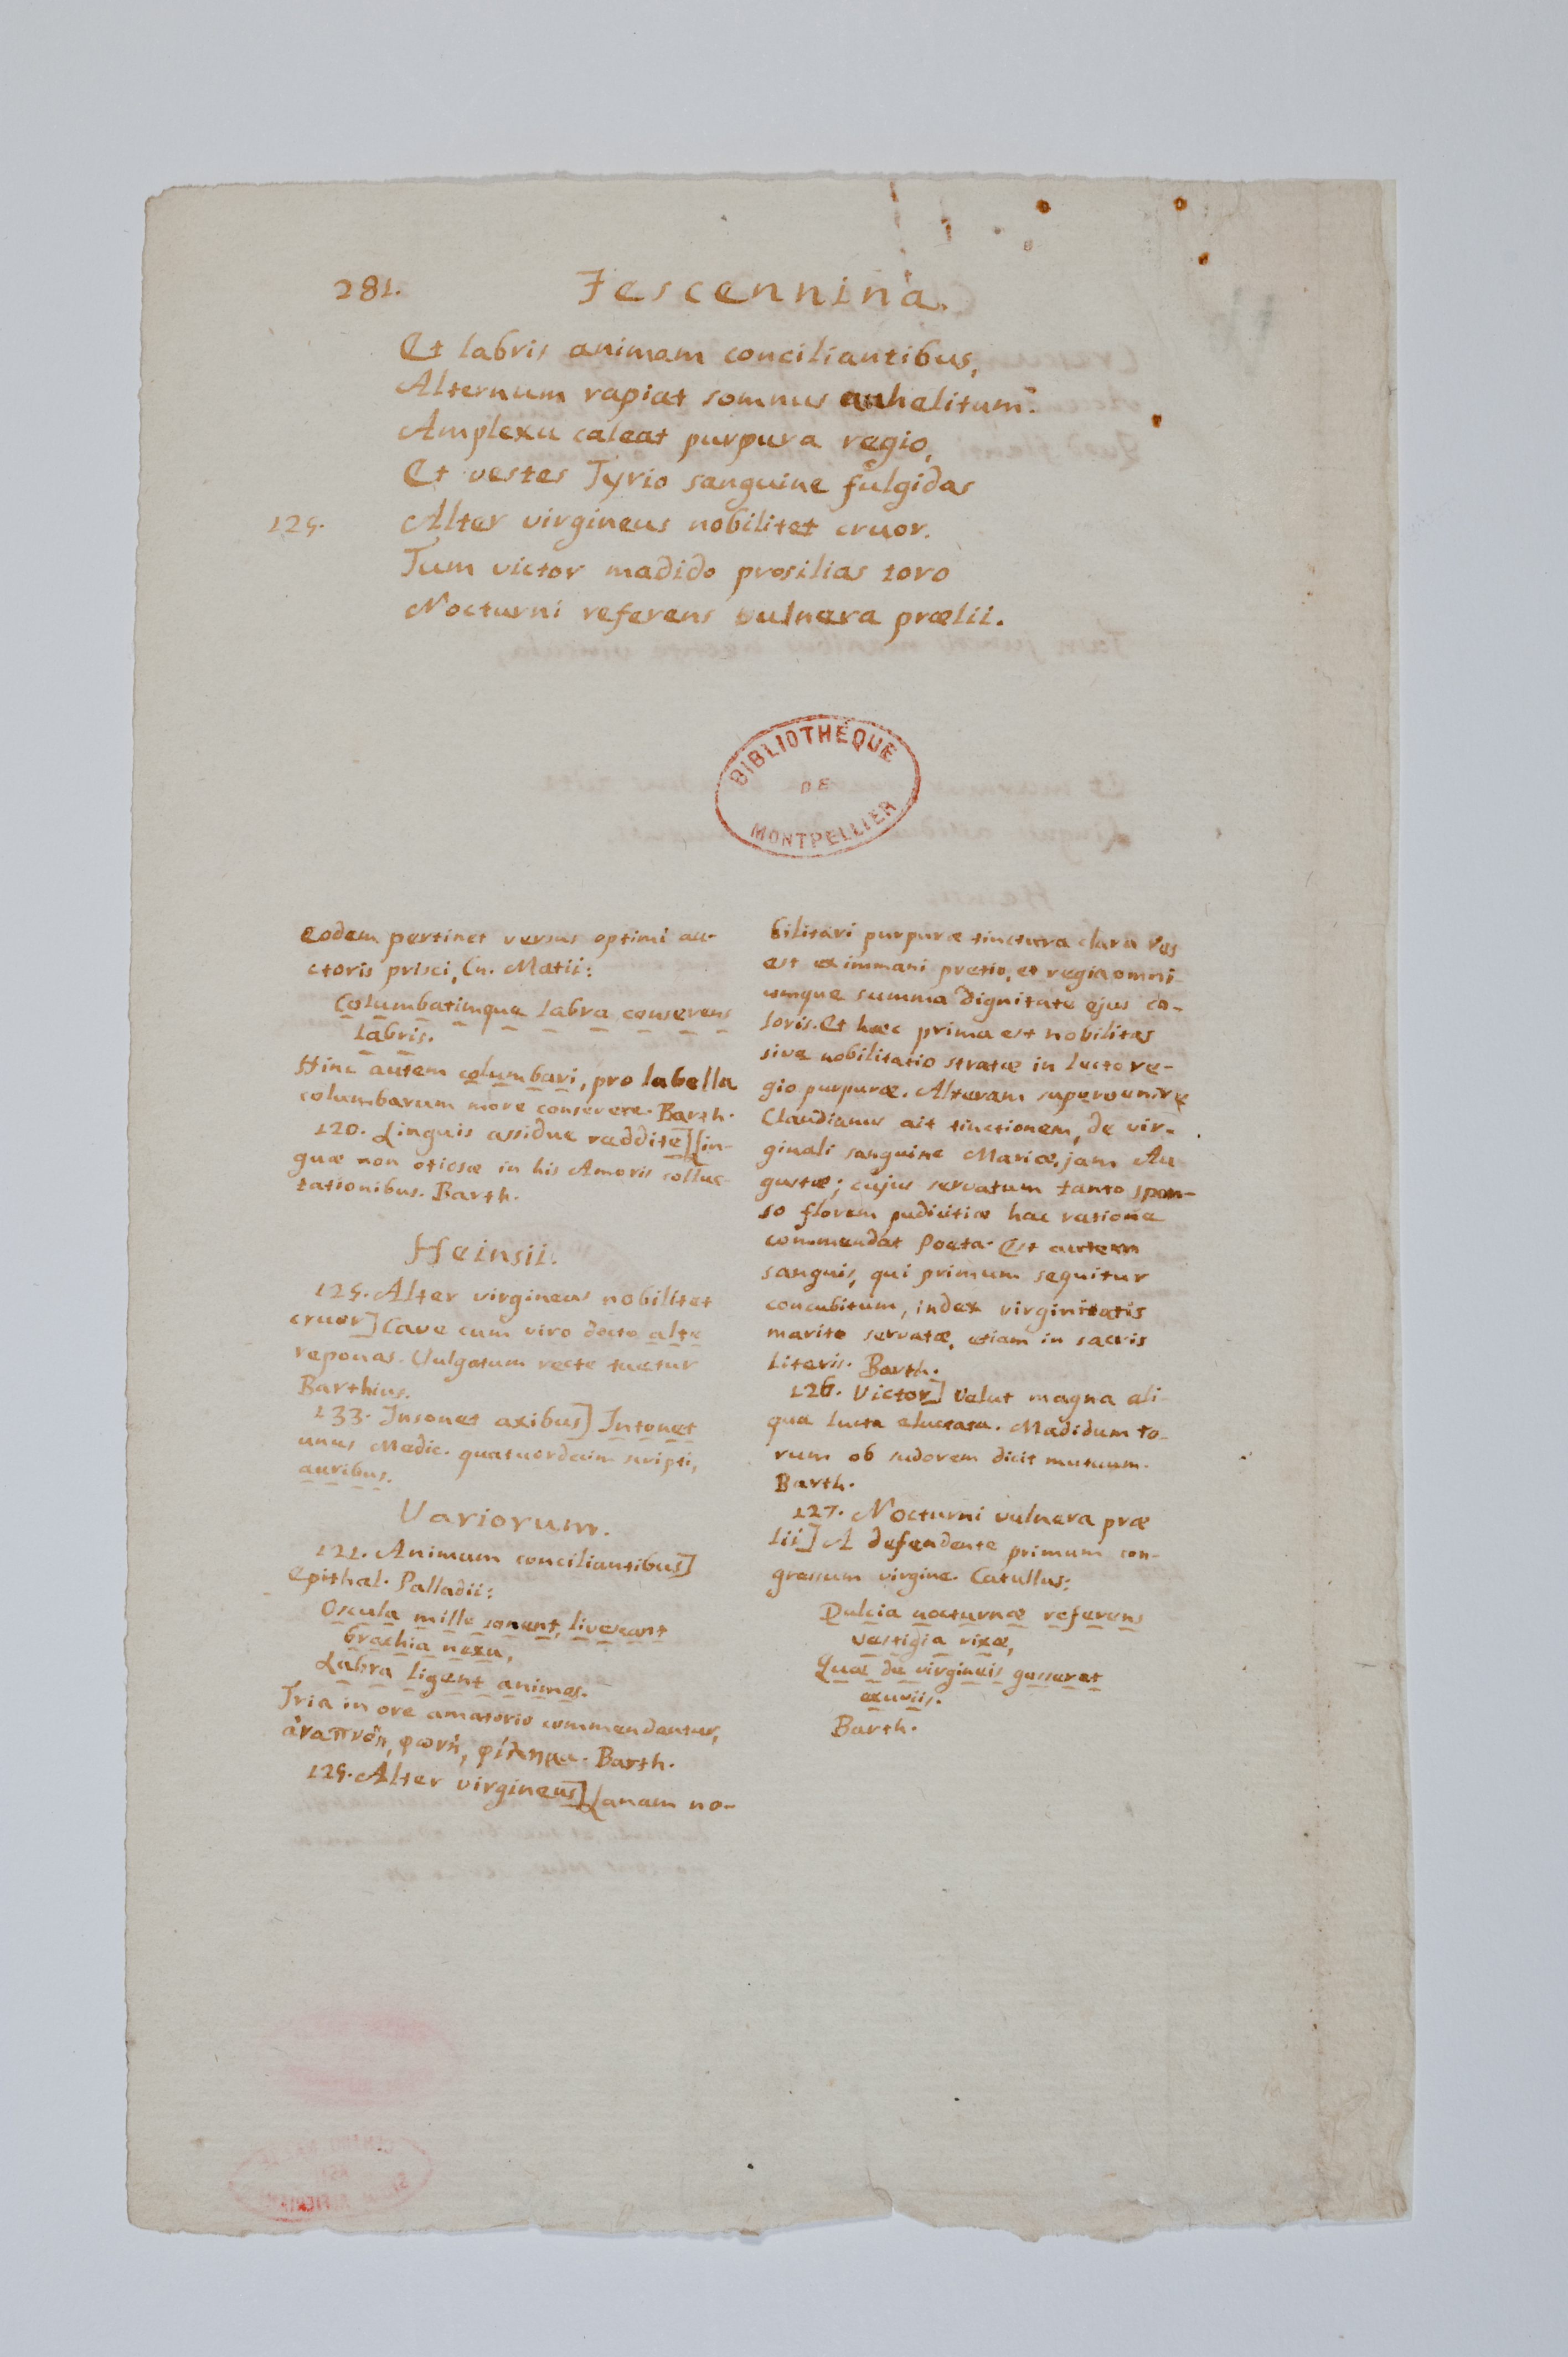 281. Fescennina.
Et labris animam conciliantibus,
Alternum rapiat somnus anhelitum.
Amplexu caleat purpura regio,
Et vestes Tyrio sanguine fulgidas
125. Alter virgineus nobilitet cruor.
Tum victor madido prosilias toro
Nocturni referens vulnera prælii.
BIBLIOTHÈQUE
DE
MONTPELLIER
eodem pertinet versus optimi au-
ctoris prisci, Cn. Matii:
Columbatimque labra conserens
labris.
Hinc autem columbari, pro labella
columbarum more conserere. Barth.
120. Linguis assidue reddite] Lin-
guæ non otiosæ in his Amoris colluc-
tationibus. Barth.
Heinsii.
125. Alter virgineus nobilitet
cruor] Cave cum viro docto alte
reponas. Vulgatum recte tuetur
Barthius.
133. Insonet axibus] Intonet
unus Medic. quatuordecim scripti,
auribus.
Variorum.
121. Animam conciliantibus]
Epithal. Palladii:
Oscula mille sonent, livescant
brachia nexu,
Labra ligent animas.
Tria in ore amatorio commendantur,
ἀναπνοὴ, φωνὴ, φίλημα. Barth.
125. Alter virgineus] Lanam no-
bilitari purpuræ tinctura clara res
est ex immani pretio, et regia omni-
umque summa dignitate ejus co-
loris. Et hæc prima est nobilitas
sive nobilitatio stratæ in lecto re-
gio purpuræ. Alteram supervenire
Claudianus ait tinctionem, de vir-
ginali sanguine Mariæ, jam Au
gustæ; cujus servatum tanto spon-
so florem pudicitiæ hac ratione
commendat Poeta. Est autem
sanguis, qui primum sequitur
concubitum, index virginitatis
marito servatæ, etiam in sacris
literis. Barth.
126. Victor] Velut magna ali-
qua lucta eluctata. Madidum to-
rum ob sudorem dicit mutuum.
Barth.
127. Nocturni vulnera præ
lii] A defendente primum con-
gressum virgine. Catullus:
Dulcia nocturnæ referens
vestigia rixæ,
Quæ de virgineis gesserat
exuviis.
Barth.